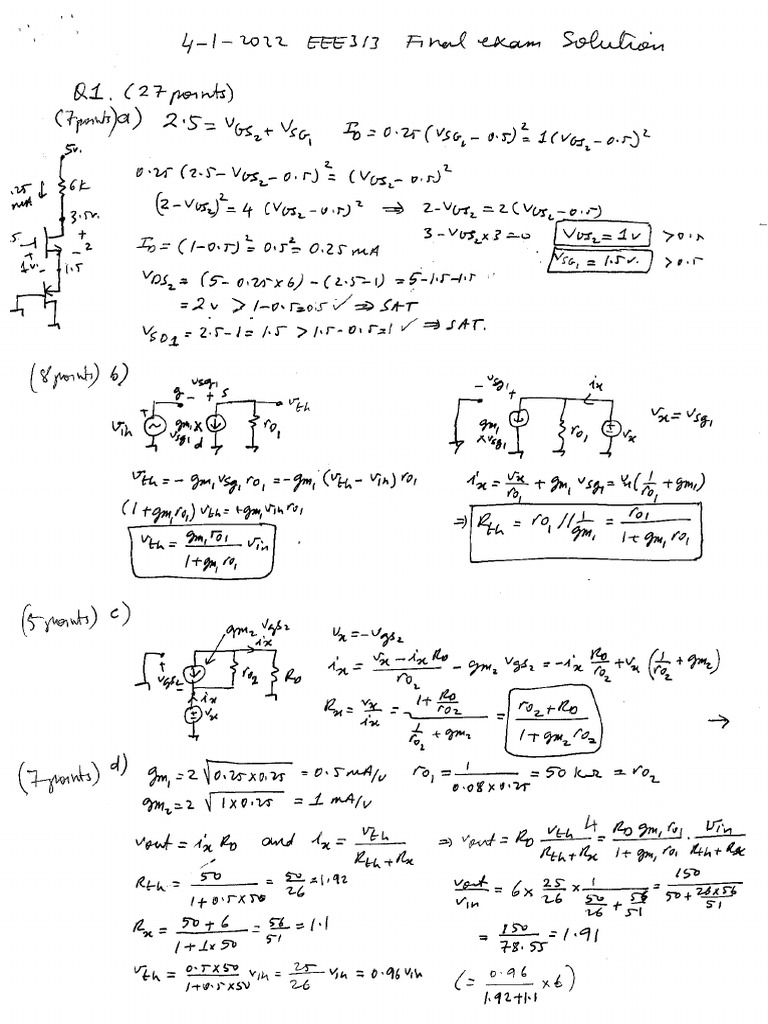 4-1-2022 EEE313 Final exam Solution
Q1. (27 points)
(7points) a) 2.5 = VGS2 + VSG1 ID = 0.25 (VSG1 - 0.5)² = 1 (VGS2 - 0.5)²
0.25 (2.5 - VGS2 - 0.5)² = (VGS2 - 0.5)²
(2 - VGS2)² = 4 (VGS2 - 0.5)² ⇒ 2 - VGS2 = 2 (VGS2 - 0.5)
3 - VGS2 x 3 = 0 VGS2 = 1v > 0.5
ID = (1 - 0.5)² = 0.5² = 0.25 mA VSG1 = 1.5v. > 0.5
VDS2 = (5 - 0.25 x 6) - (2.5 - 1) = 5 - 1.5 - 1.5
= 2v > 1 - 0.5 = 0.5 ✓ ⇒ SAT
VSD1 = 2.5 - 1 = 1.5 > 1.5 - 0.5 = 1 ✓ ⇒ SAT.
5v.
.25 mA ↓ 6k
3.5v.
5 + - 2
+ 1v. - 1.5
(8points) b)
vin + g - vsg1 + s gm1 x vsg1 d ro1 vth
- vsg1 + gm1 x vsg1 ro1 ix vx vx = vsg1
vth = - gm1 vsg1 ro1 = - gm1 (vth - vin) ro1
(1 + gm1 ro1) vth = + gm1 vin ro1
vth = gm1 ro1 / (1 + gm1 ro1) vin
ix = vx / ro1 + gm1 vsg1 = vx (1/ro1 + gm1)
⇒ Rth = ro1 // 1/gm1 = ro1 / (1 + gm1 ro1)
(5points) c)
vgs2 - gm2 vgs2 ix ro2 RD ix + vx
vx = - vgs2
ix = (vx - ix RD) / ro2 - gm2 vgs2 = - ix RD/ro2 + vx (1/ro2 + gm2)
Rx = vx / ix = (1 + RD/ro2) / (1/ro2 + gm2) = (ro2 + RD) / (1 + gm2 ro2) →
(7points) d) gm1 = 2 √(0.25 x 0.25) = 0.5 mA/v ro1 = 1 / (0.08 x 0.25) = 50 kΩ = ro2
gm2 = 2 √(1 x 0.25) = 1 mA/v
vout = ix RD and ix = vth / (Rth + Rx) ⇒ vout = RD vth / (Rth + Rx) = RD gm1 ro1 / (1 + gm1 ro1) . vin / (Rth + Rx)
Rth = 50 / (1 + 0.5 x 50) = 50/26 = 1.92
Rx = (50 + 6) / (1 + 1 x 50) = 56/51 = 1.1
vth = 0.5 x 50 / (1 + 0.5 x 50) vin = 25/26 vin = 0.96 vin
vout / vin = 6 x 25/26 x 1 / (50/26 + 56/51) = 150 / (50 + 26 x 56 / 51)
= 150 / 78.55 = 1.91
(= 0.96 / (1.92 + 1.1) x 6)